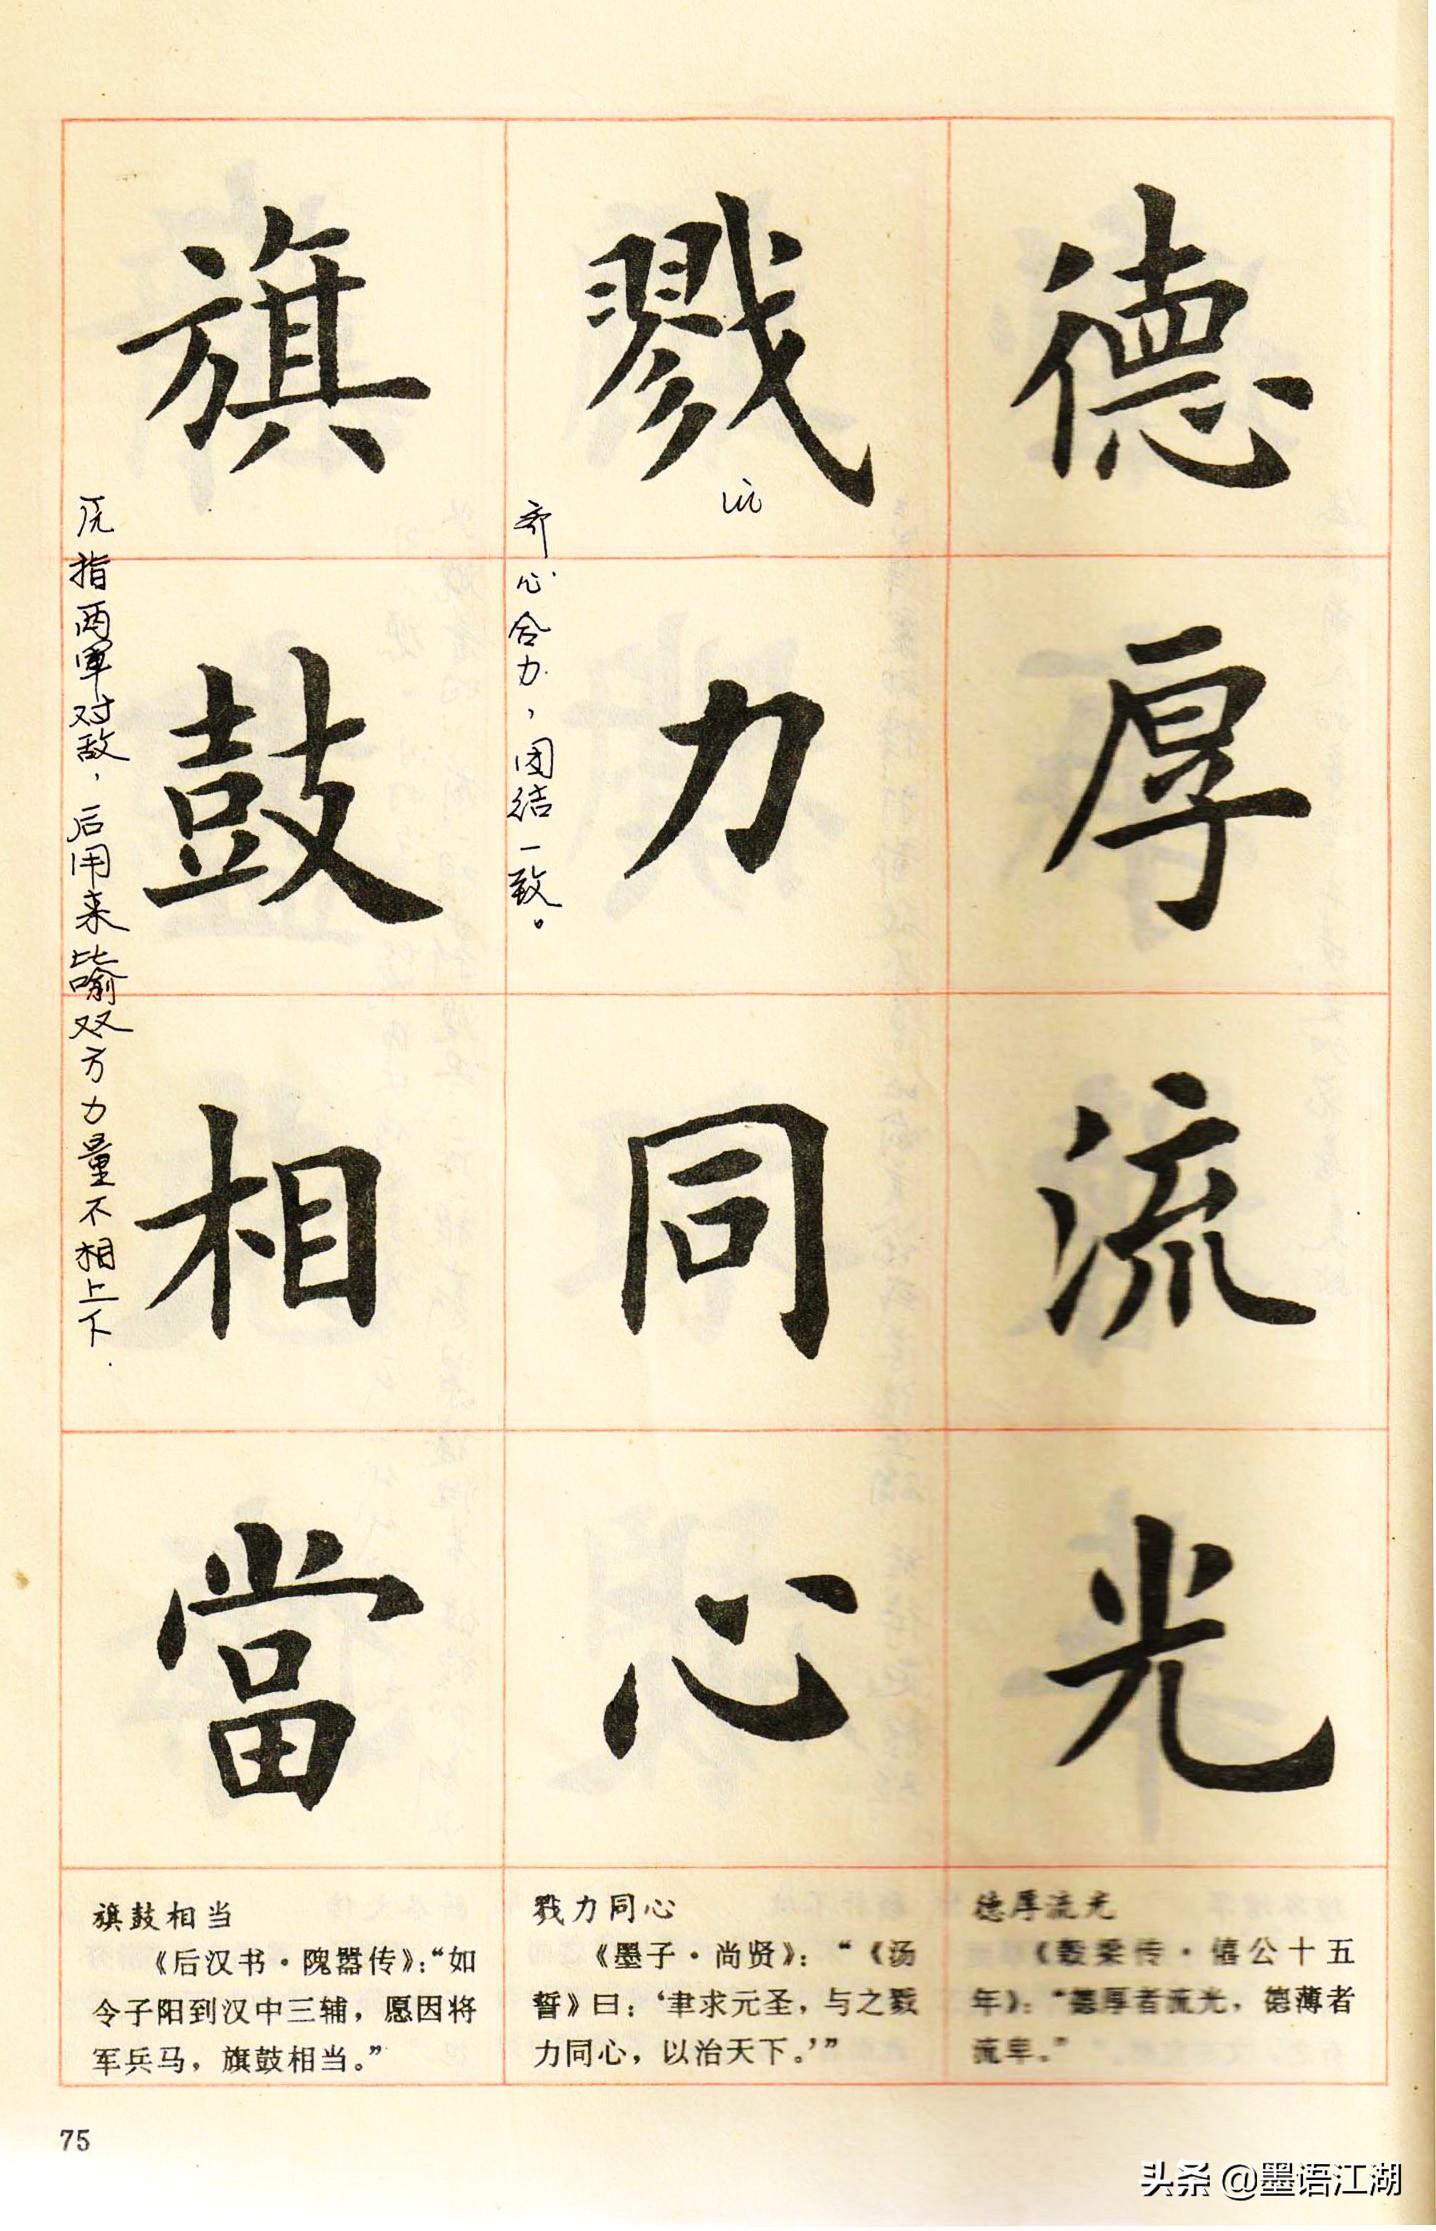 德厚流光
戮力同心
lù
齐心合力，团结一致。
旗鼓相當
原指两军对敌，后用来比喻双方力量不相上下.
德厚流光
《穀梁传·僖公十五
年》：“德厚者流光，德薄者
流卑。”
戮力同心
《墨子·尚贤》：“《汤
誓》曰：‘聿求元圣，与之戮
力同心，以治天下。’”
旗鼓相当
《后汉书·隗嚣传》：“如
令子阳到汉中三辅，愿因将
军兵马，旗鼓相当。”
75
头条 @墨语江湖